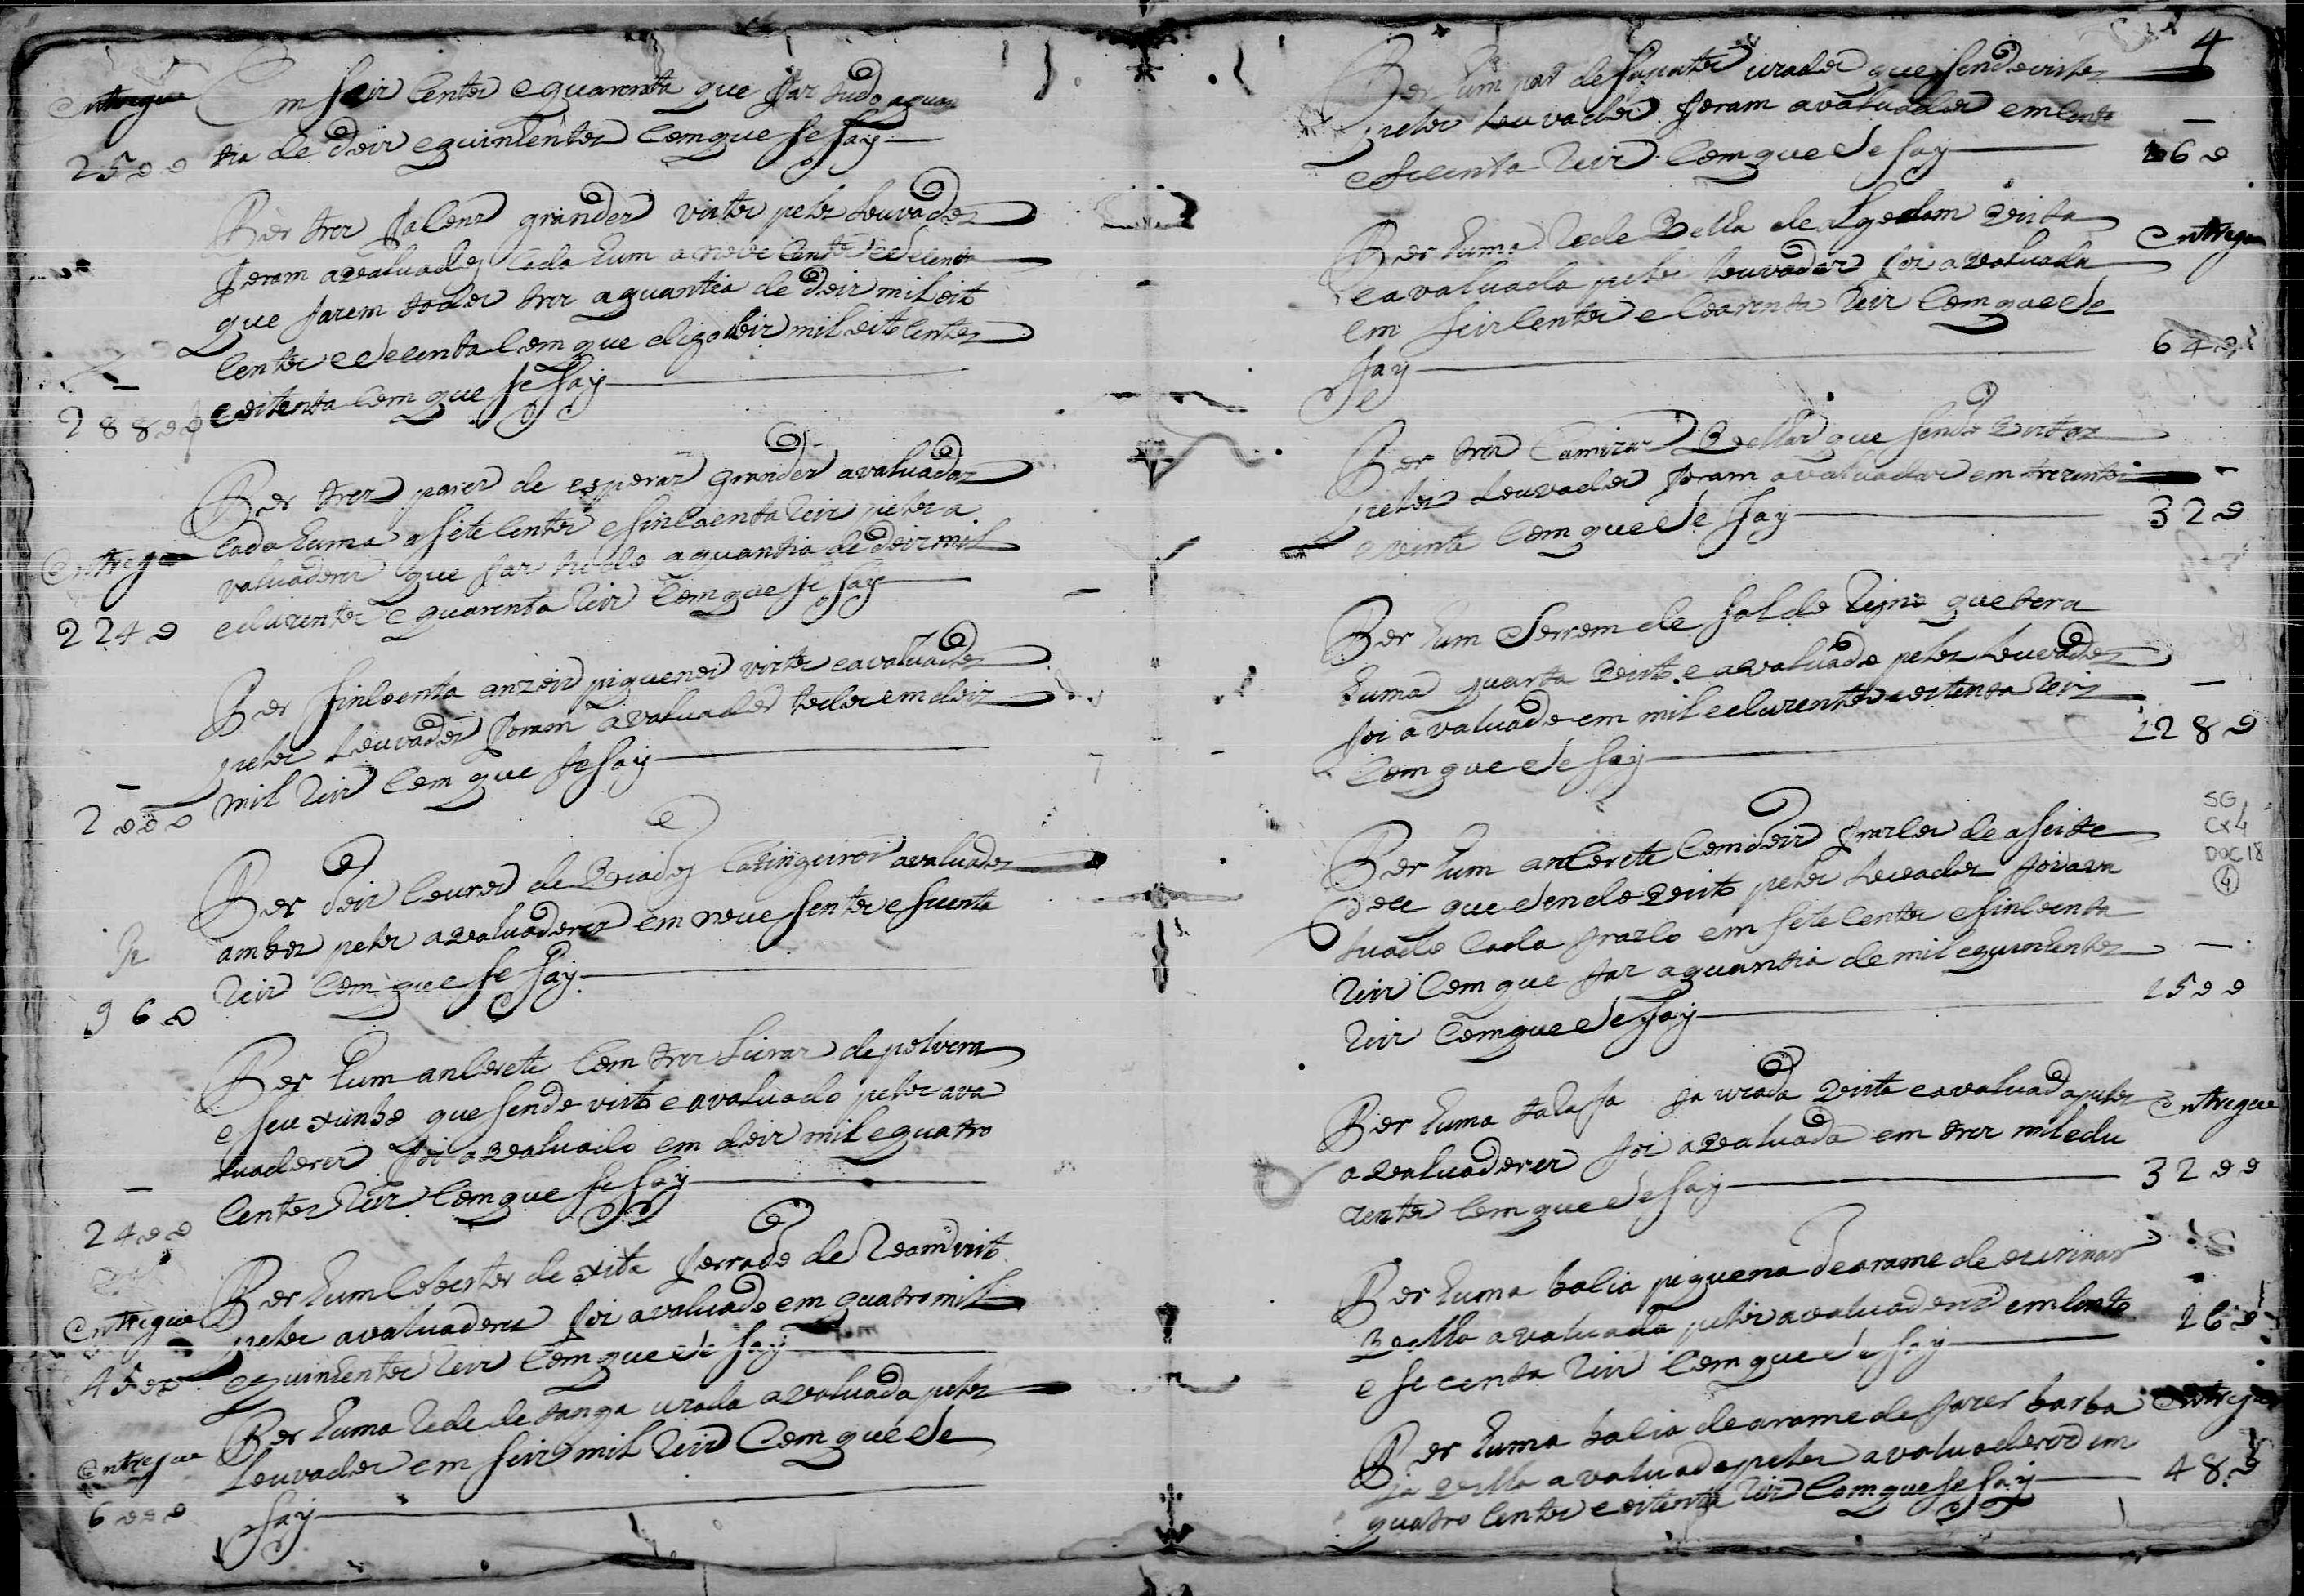 Entregue
em seis centos e quarenta que fas tudo a quan
tia de dois e quinhentos com que se say
2500
Por tres falcens grandes vistos pelos Louvados
foram avaluados cada hum a nove centos e secenta
que farem todos tres a quantia de dois mil oito
centos e secenta com que digo dois mil oito centos
e oitenta com que se say
2880
Por tres pares de esporas grandes avaluadas
cada huma a sete centos e sincoenta reis pelos a
valuadores que fas tudo a quantia de dois mil
e duzentos e quarenta reis com que se say
Entregue
2240
Por sincoenta anzois piquenos vistos e avaluados
pelos Louvados foram avaluados todos em dois
mil reis com que se say
2000
Por dois couros de Veados catingeiros avaluados
ambos pelos avaluadores em nove sentos e secenta
reis com que se say
960
Por hum ancorete com tres Livras de polvora
e seu xunbo que sendo visto e avaluado pelos ava
luadores foi avaluado em dois mil e quatro
centos reis com que se say
2400
Por hum cobertor de xita forrado de visto
pelos avaluadores foi avaluado em quatro mil
e quinhentos reis com que se say
Entregue
4500
Por huma rede de tanga uzada avaluada pelos
Louvados em seis mil reis com que se
say
Entregue
6000
4
Por hum par de sapatos uzados que sendo vistos
pelos Louvados foram avaluados em cento
e secenta reis com que se say
160
Por huma rede Velha de algodam Vista
e avaluada pelos Louvados foi avaluada
em seis centos e coarenta reis com que se
say
Entregue
640
Por tres Camizas Velhas que sendo Vistas
pelos Louvados foram avaluadas em trezentos
e vinte com que se say
320
Por hum Serrom de sal do Reino que tera
huma quarta Visto e avaluado pelos Louvados
foi avaluado em mil e duzentos e oitenta reis
com que se say
1280
SG
Cx4
DOC 18
4
Por hum ancorete com dois frascos de aseite
doce que sendo Visto pelos Louvados foi ava
luado cada frasco em sete centos e sincoenta
reis com que fas a quantia de mil e quinhentos
reis com que se say
1500
Por huma ja uzada Vista e avaluada pelos
avaluadores foi avaluada em tres mil e du
zentos com que se say
Entregue
3200
Por huma bacia piquena de arame de ourinar
Velha avaluada pelos avaluadores em cento
e secenta reis com que se say
160
Por huma bacia de arame de fazer barba
ja Velha avaluada pelos avaluadores em
quatro centos e oitenta reis com que se say
Entregue
480